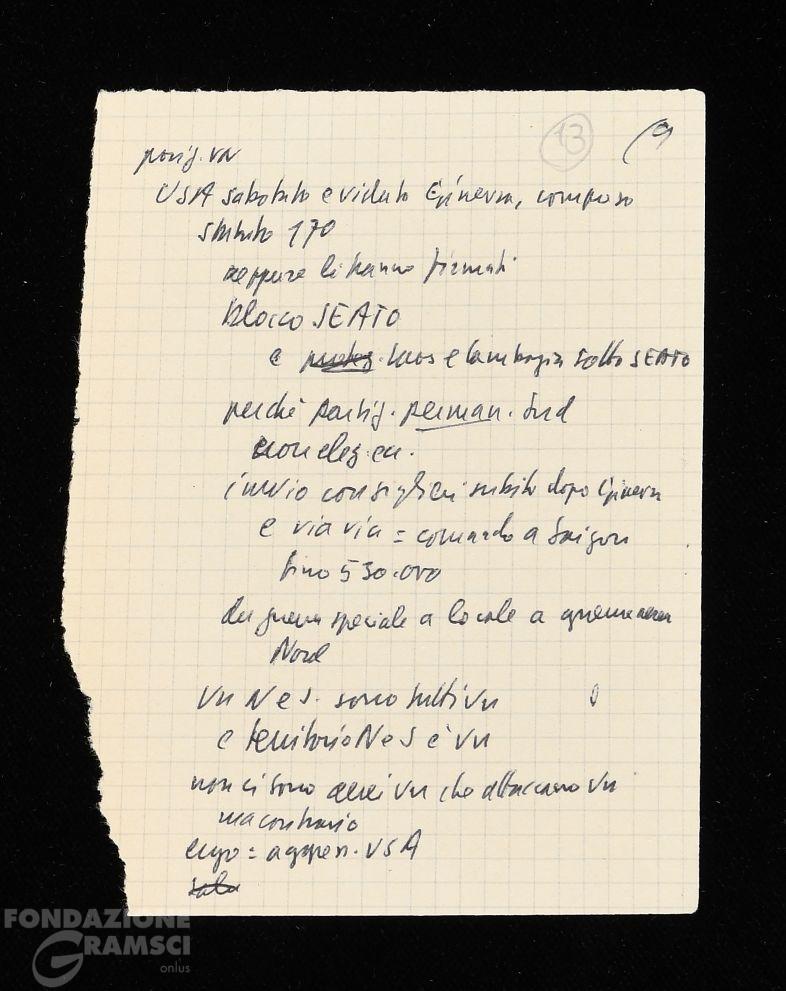 13
(9
posiz. VN
USA sabotato e violato Ginevra, compreso
statuto 170
neppure li hanno firmati
blocco SEATO
e Laos e Cambogia sotto SEATO
perché partiz. perman. Sud
non elez. en.
invio consiglieri subito dopo Ginevra
e via via = comando a Saigon
fino 530.000
da guerra speciale a locale a guerra aerea
Nord
VN N e S. sono tutti VN
e territorio N e S è VN
non ci sono aerei VN che attaccano VN
ma contrario
ergo = aggres. USA
FONDAZIONE
GRAMSCI
onlus